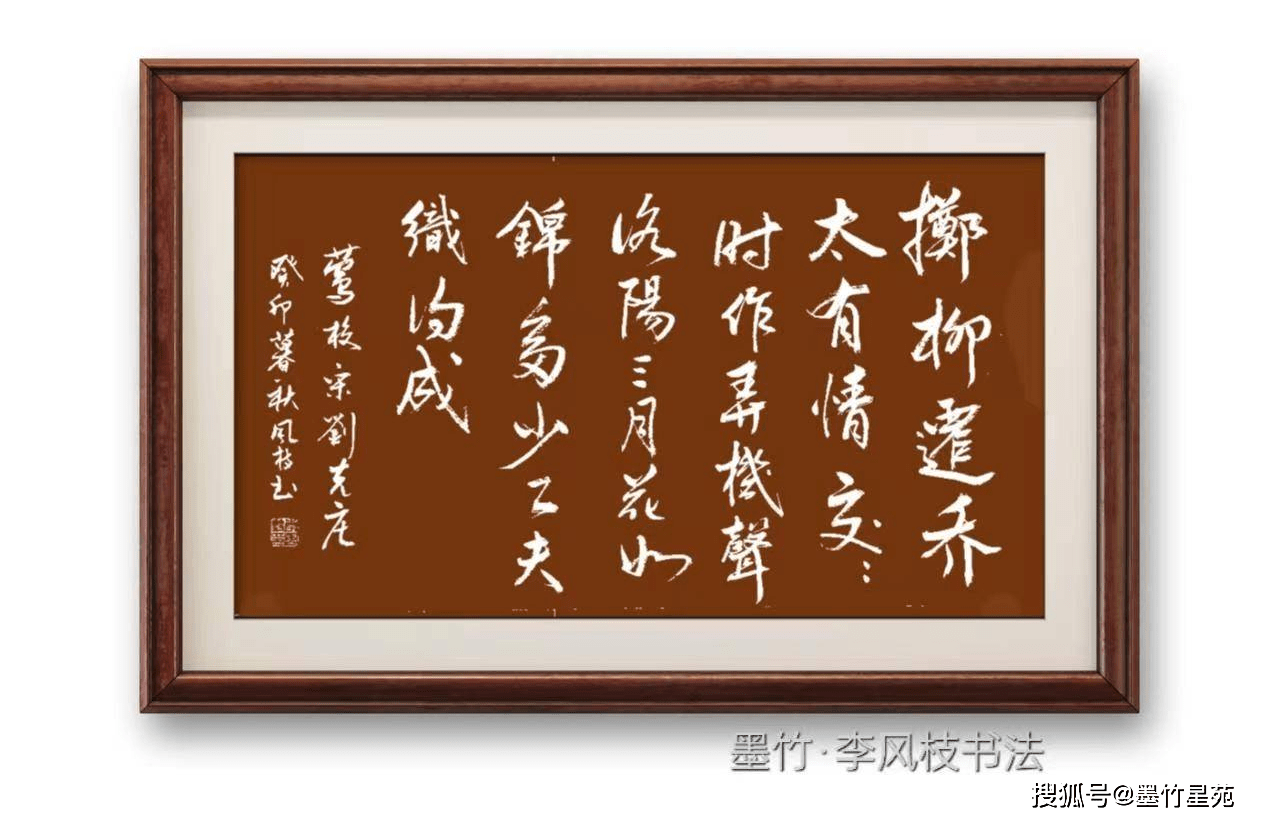 擲柳遷乔
太有情交〻
时作弄機聲
洛陽三月花如
錦多少工夫
織得成
莺梭宋劉克庄
癸卯暮秋风枝书
墨竹·李风枝书法
搜狐号@墨竹星苑